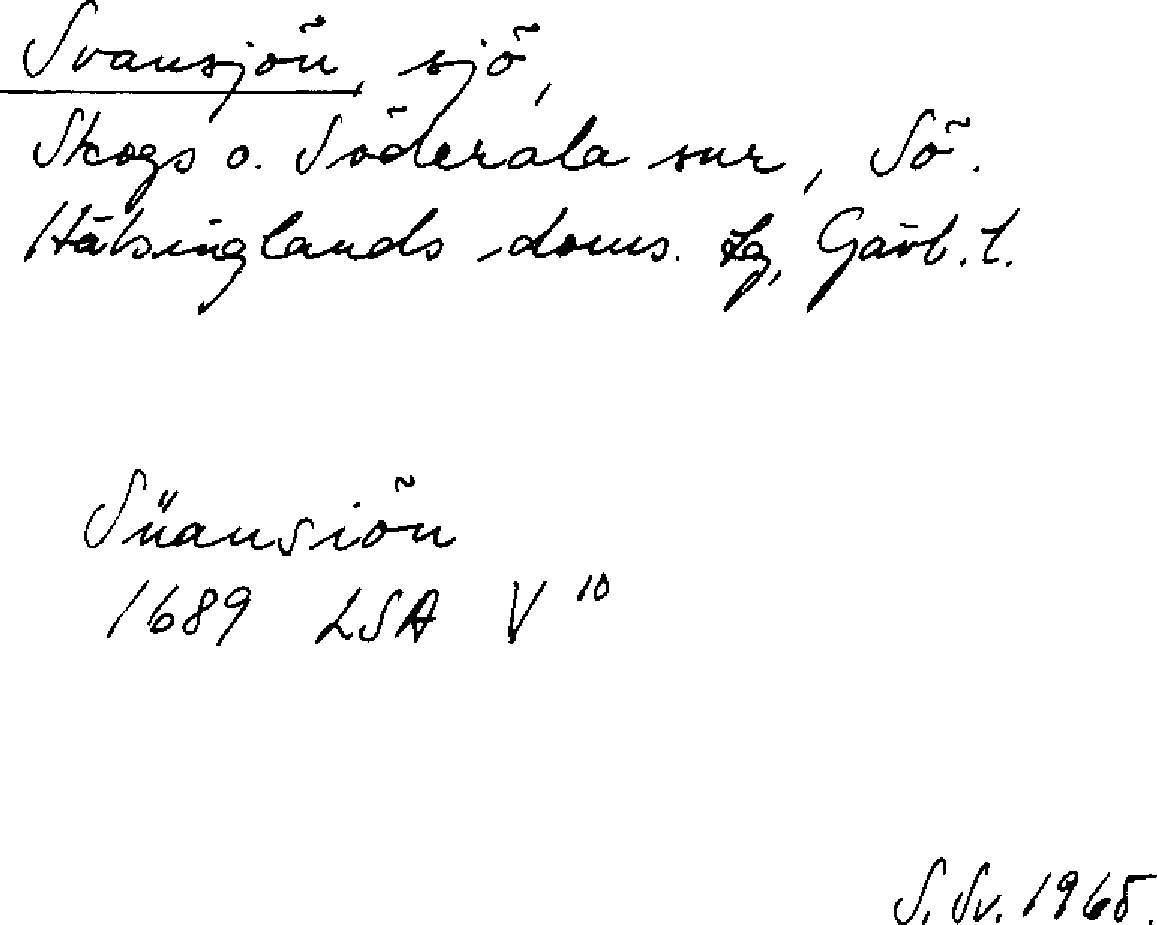 Svansjön, sjö,
Skogs o. Söderala snr, Sö.
Hälsinglands doms. tg, Gävl. l.
Süansiön
1689 LSA V 10
S. Sv. 1965.